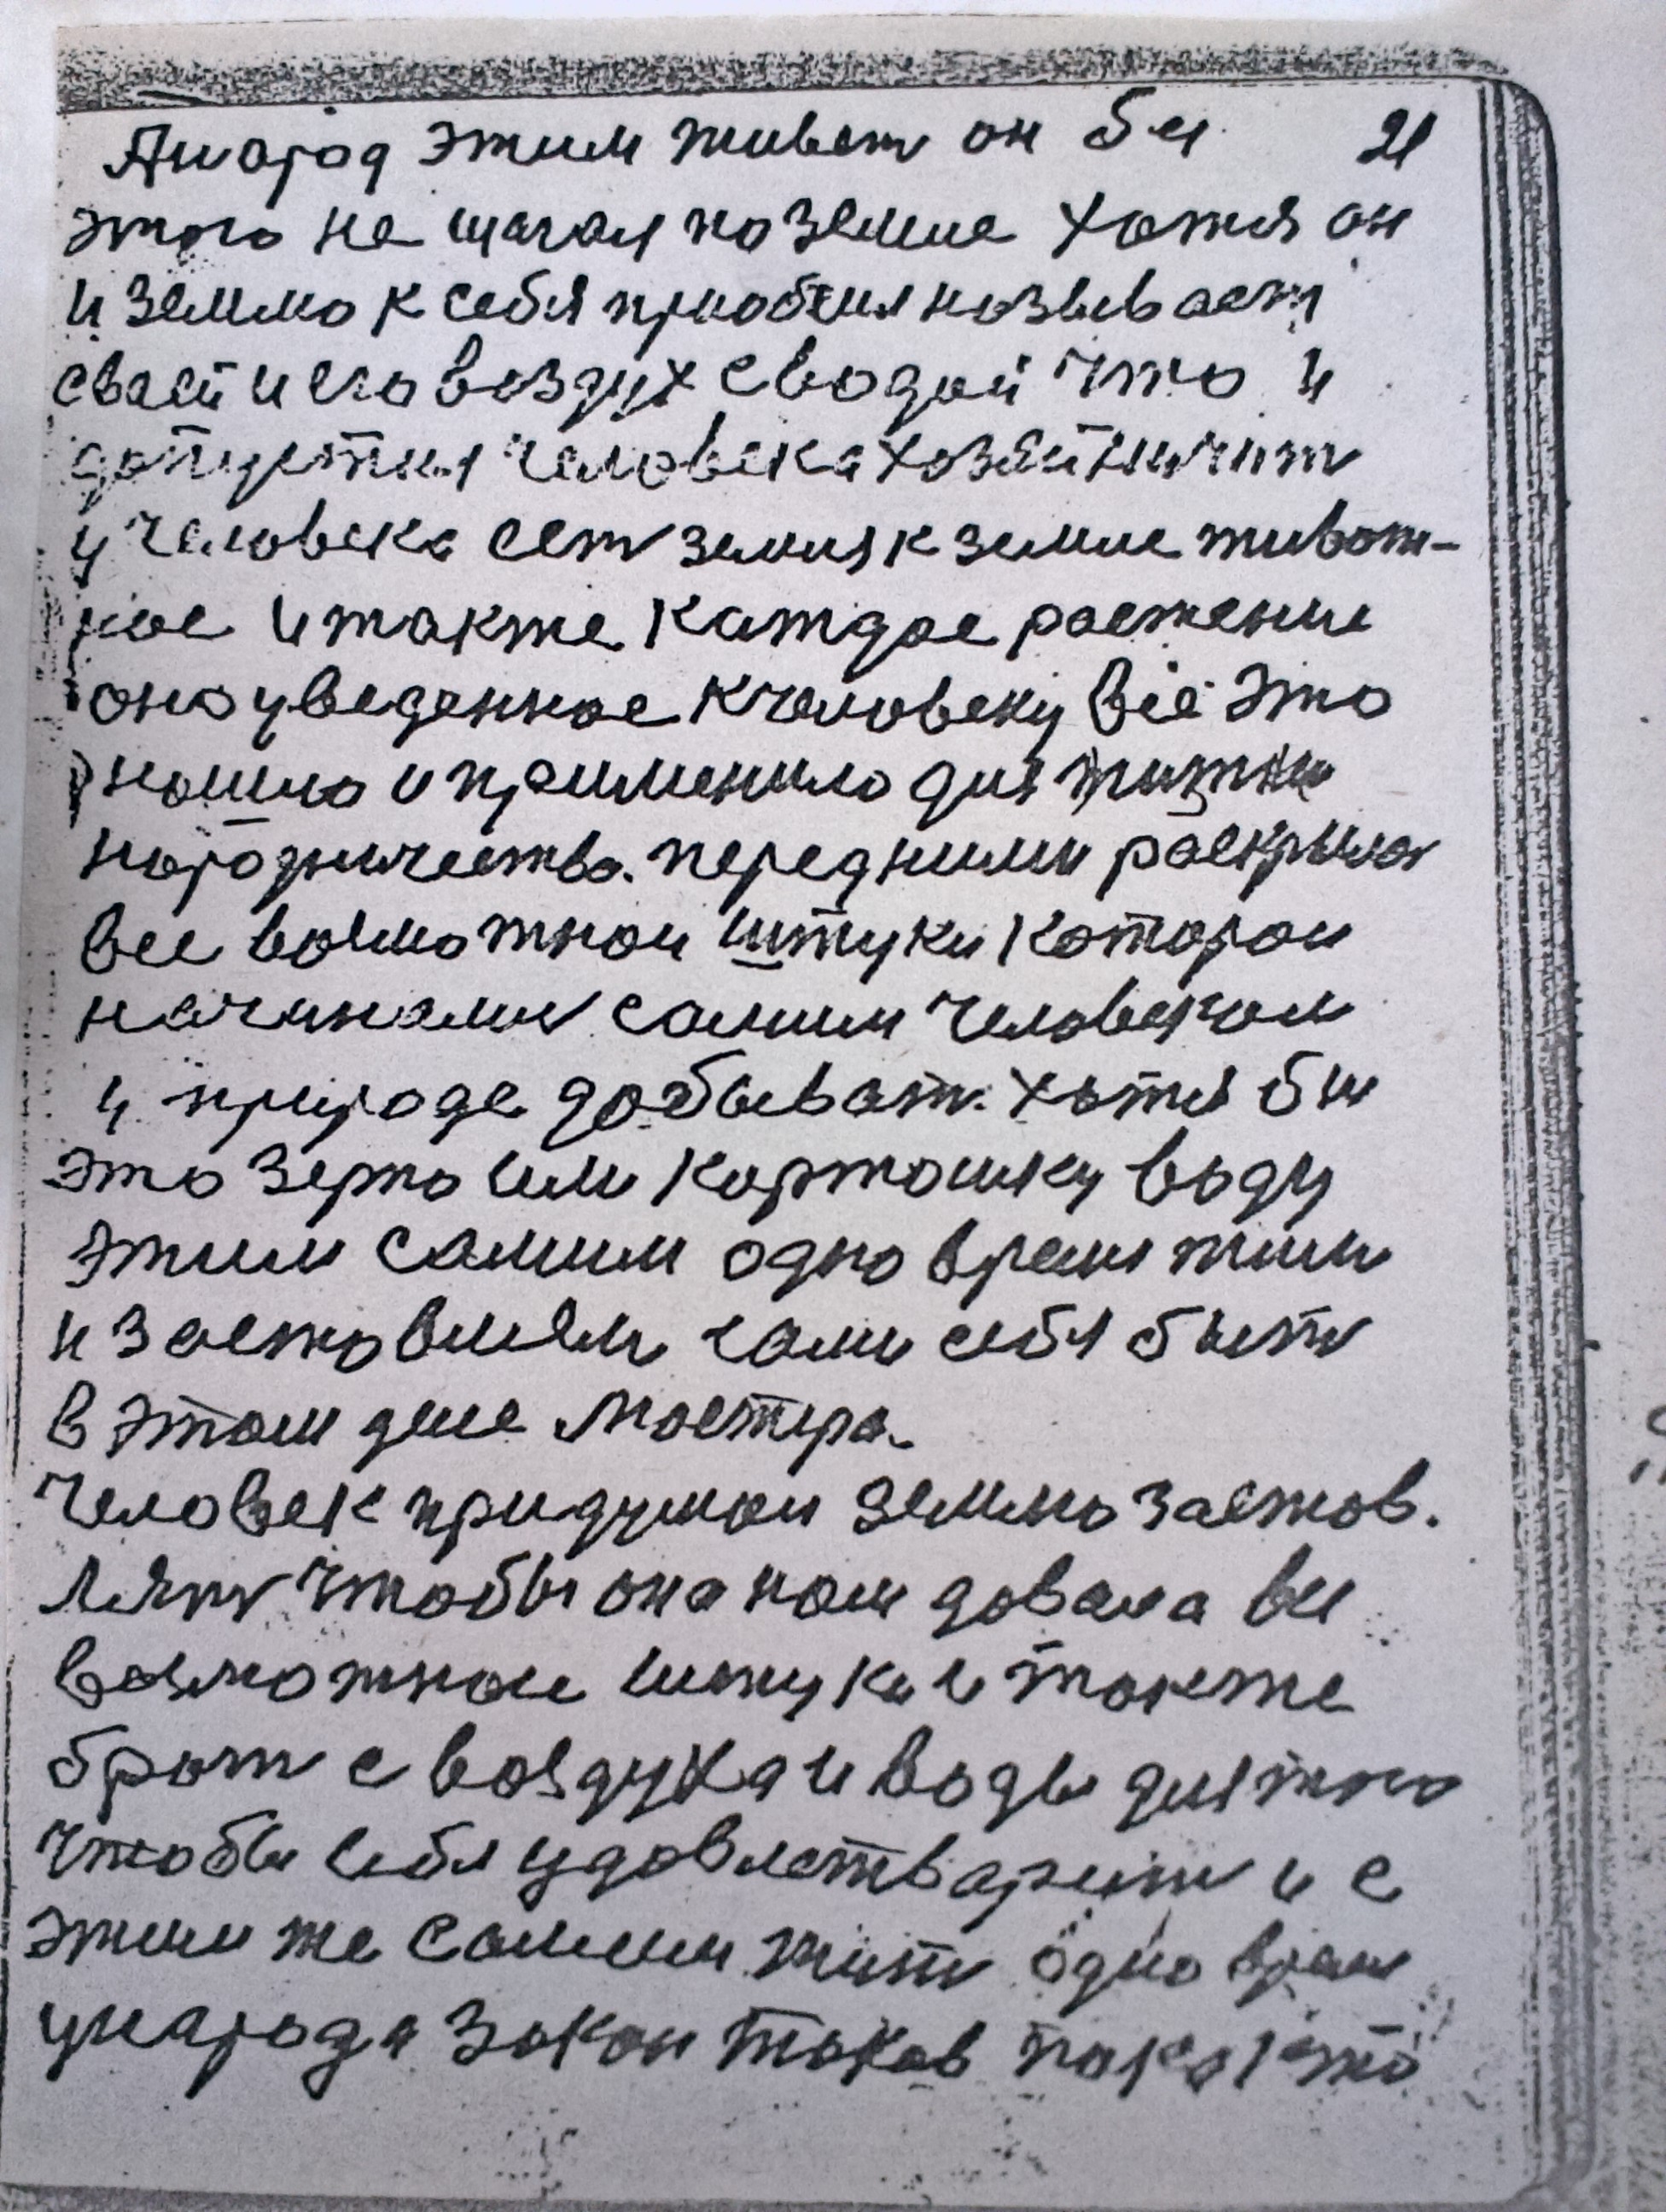 А народ этим живет он бы 21
этого не шагал по земле хотя он
и землю к себя приобщил называет
своей и его воздух с водой что и
допустил человека хозяйничит
у человека ест земля к земле живот-
ное и также каждое растение
оно уведенное к человеку всё это
нашло и применило для жизни
народничество. перед ними раскрыла
все возможнои штуки которои
начинали самим человеком
у природе добыват. хотя бы
это зерно или картошку воду
этим самим одно время жили
и заставляем сами себя быть
в этом деле мастера.
Человек придумал землю застав.
лять чтобы она нам давала все
возможнои штуки и также
брать с воздуха и воды для того
чтобы себя удовлетварить и с
этим же самим жить одно время
у народа закон таков пока что